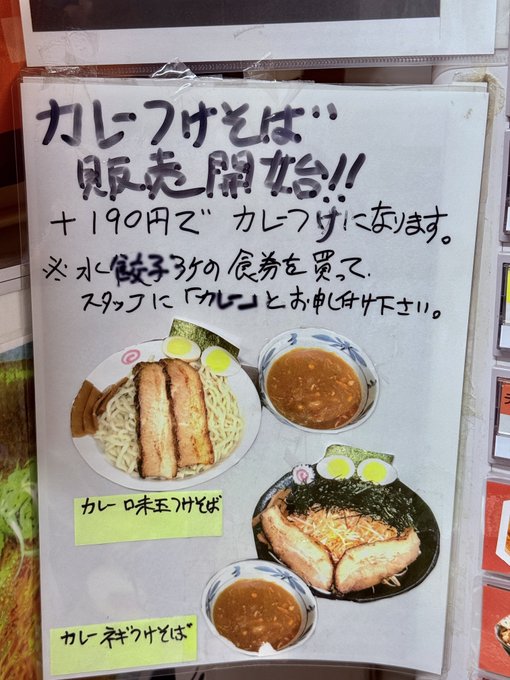 カレーつけそば
販売開始!!
+190円で カレーつけになります。
※水餃子3ケの食券を買って、
スタッフに「カレー」とお申し付け下さい。
カレー味玉つけそば
カレーネギつけそば